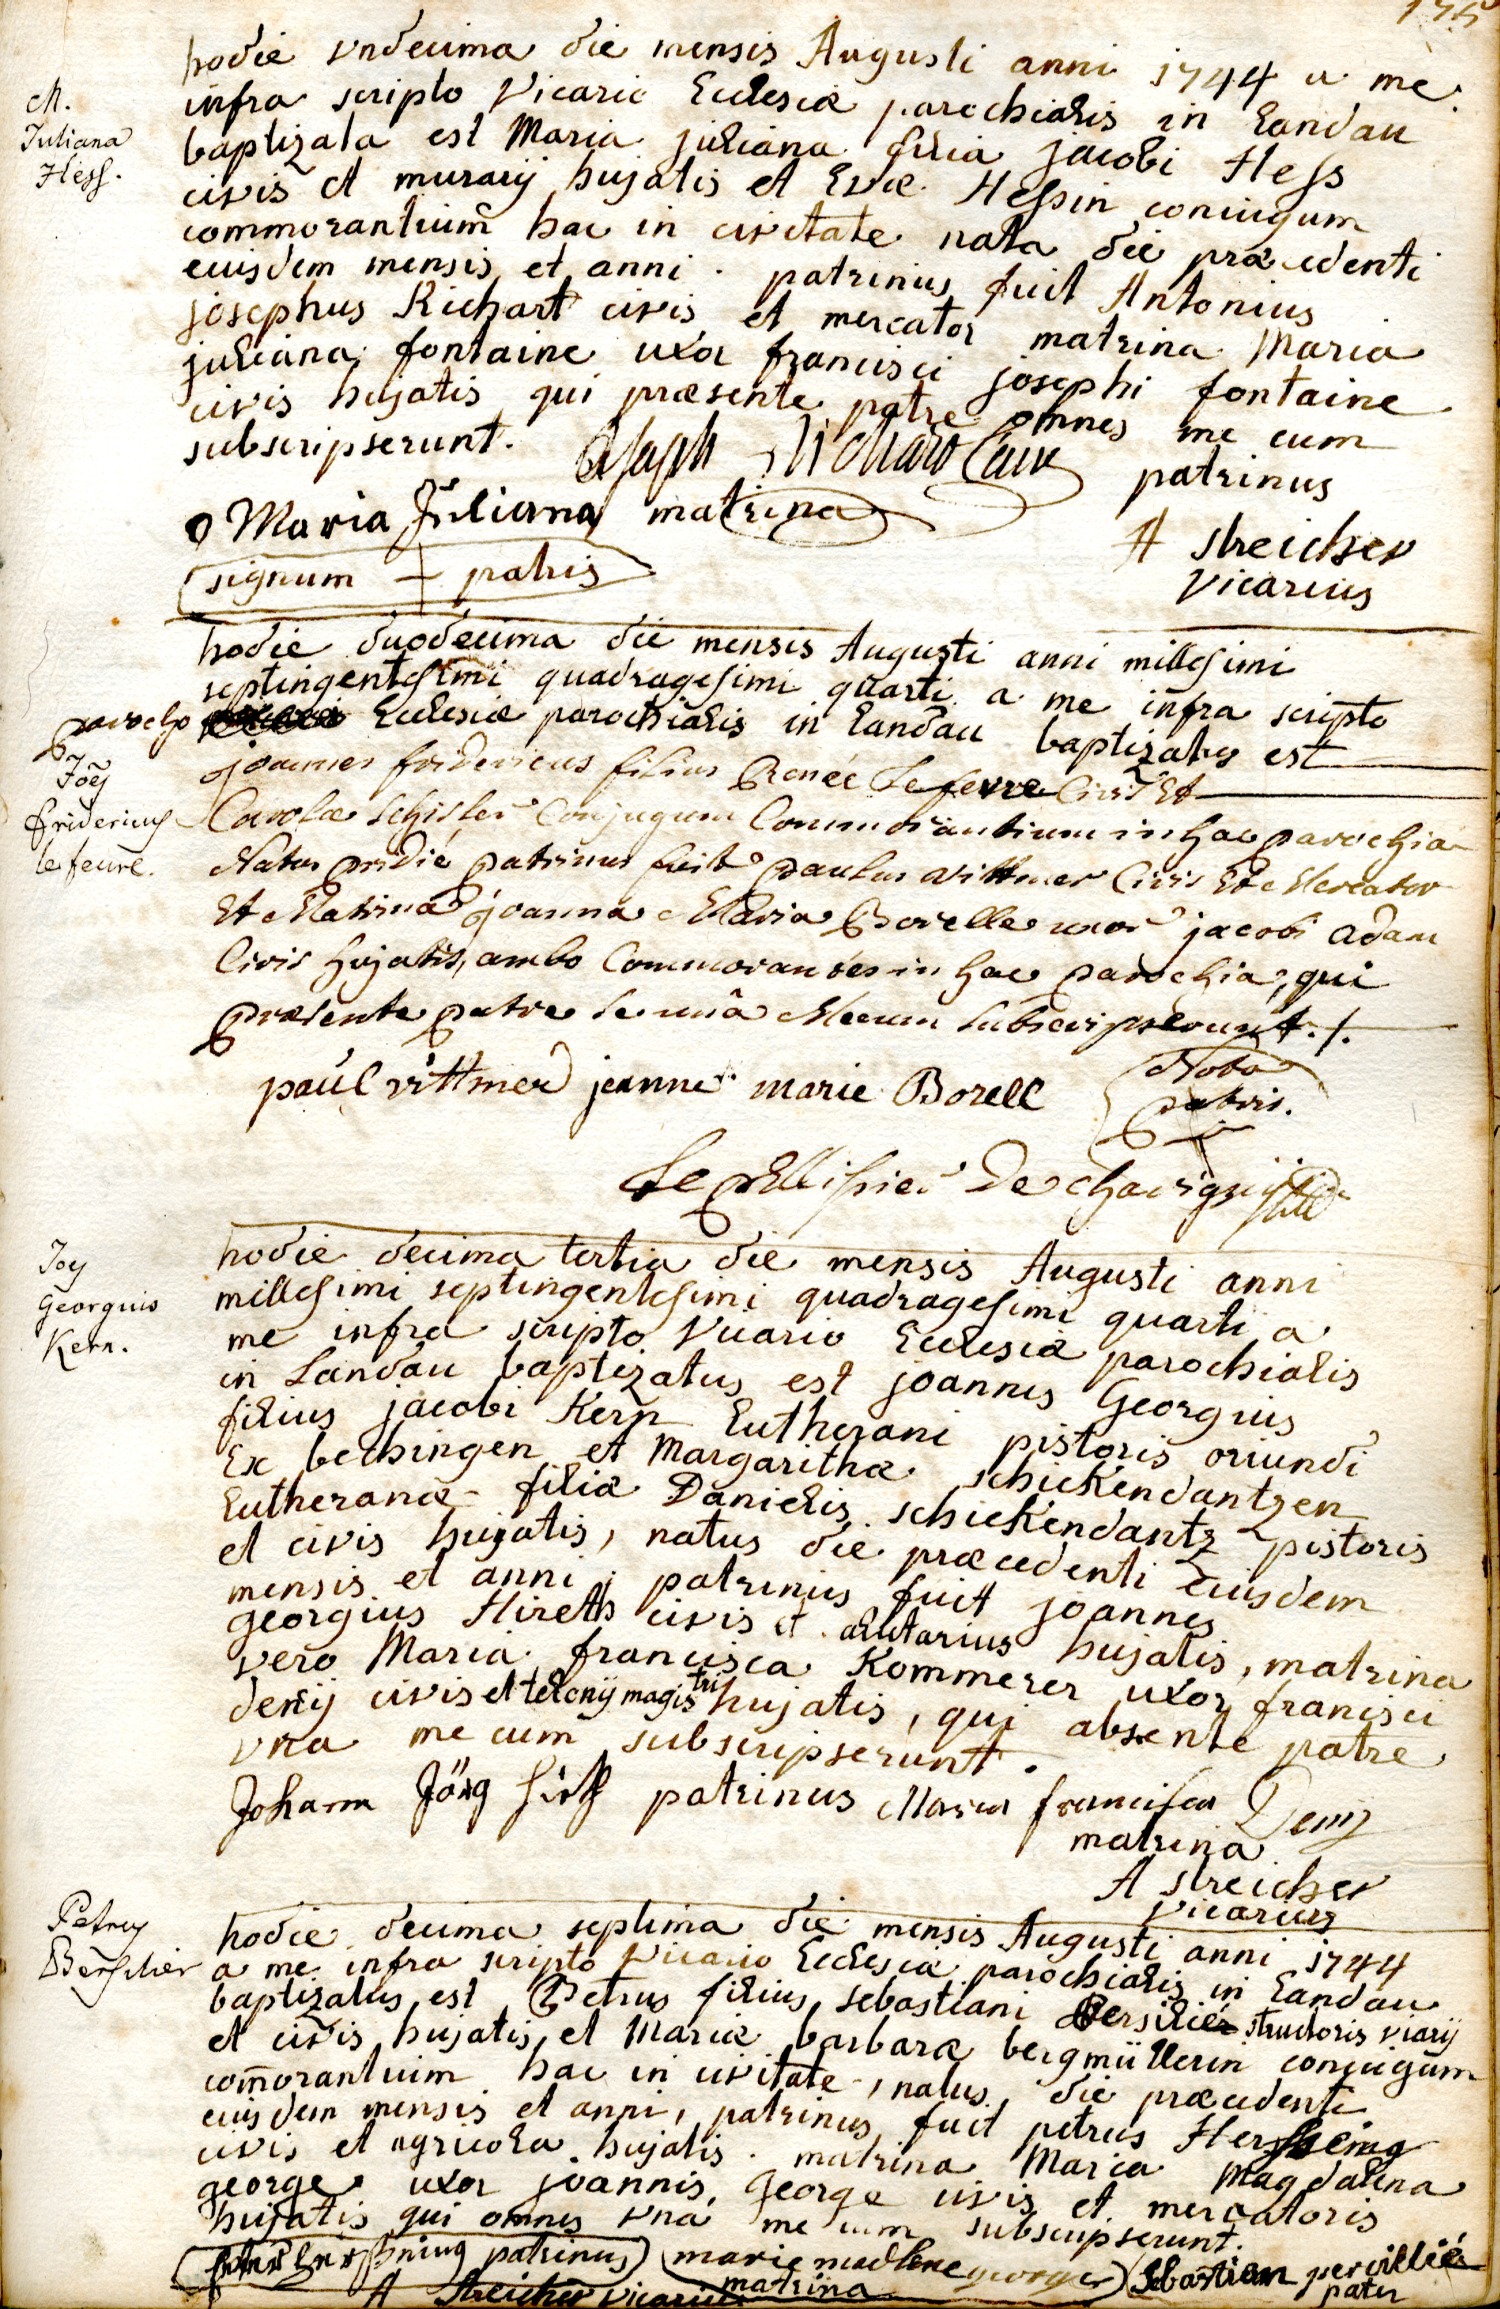 hodie undecima die mensis Augusti anni 1744 a me
infra scripto Vicario Ecclesiæ parochialis in Landau
M.
Juliana
Hess.
baptizata est Maria juliana filia jacobi Hess
civis et murarij hujatis et Evæ Hessin conjugum
commorantium hac in civitate nata die præcedenti
eiusdem mensis et anni. patrinus fuit Antonius
josephus Richart civis et mercator matrina Maria
juliana fontaine uxor francisci josephi fontaine
civis hujatis qui præsente patre omnes me cum
subscripserunt.
patrinus
Maria Juliana matrina
A Streicher
Vicarius
signum + patris
hodie duodecima die mensis Augusti anni millesimi
septingentesimi quadragesimi quarti a me infra scripto
parocho Ecclesiæ parochialis in Landau baptizatus est
Joẽs
fridericus
lefeure.
joannes fridericus filius Renée Lefevre Civis Et
Carolæ Schisler Conjugum Commorantium in hac parochia
Natus pridié patrinus fuit paulus Wittmer Civis Et Mercator
Et Matrina joanna Maria Borelle uxor jacobi adam
Civis hujatis, ambo Commorantes in hac parochia, qui
præsente patre se unâ Mecum Subscripserunt./.
paul vittmer jeanne marie Borell
Nota
patris.
Le Pellissier De chavigny
Joẽs
Georgius
Kern.
hodie decima tertia die mensis Augusti anni
millesimi septingentesimi quadragesimi quarti a
me infra scripto Vicario Ecclesiæ parochialis
in Landau baptizatus est joannes Georgius
filius jacobi Kern Lutherani pistoris oriundi
Ex bechingen et Margarithæ schickendantzen
Lutheranæ filiæ Danielis schickendantz pistoris
et civis hujatis, natus die præcedenti Eiusdem
mensis et anni; patrinus fuit joannes
georgius Hireth civis et alutarius hujatis, matrina
vero Maria francisca Kommerer uxor francisci
denij civis et telonij magistri hujatis, qui absente patre
una me cum subscripserunt.
Johann Jörg Hirth patrinus Maria francisca Denij
matrina
A Streicher
Vicarius
Petrus
hodie decima septima die mensis Augusti anni 1744
a me infra scripto Vicario Ecclesiæ parochialis in Landau
baptizatus est Petrus filius sebastiani Bersilier structoris viarij
et civis hujatis, et Mariæ barbaræ bergmüllerin conjugum
com̃orantium hac in civitate, natus die præcedenti
eiusdem mensis et anni, patrinus fuit petrus Hersching
civis et agricola hujatis. matrina Maria Magdalena
george uxor joannis George civis et mercatoris
hujatis qui omnes una me cum subscripserunt.
patrinus marie madlene george Sebastian persillié
A Streicher Vicarius matrina pater